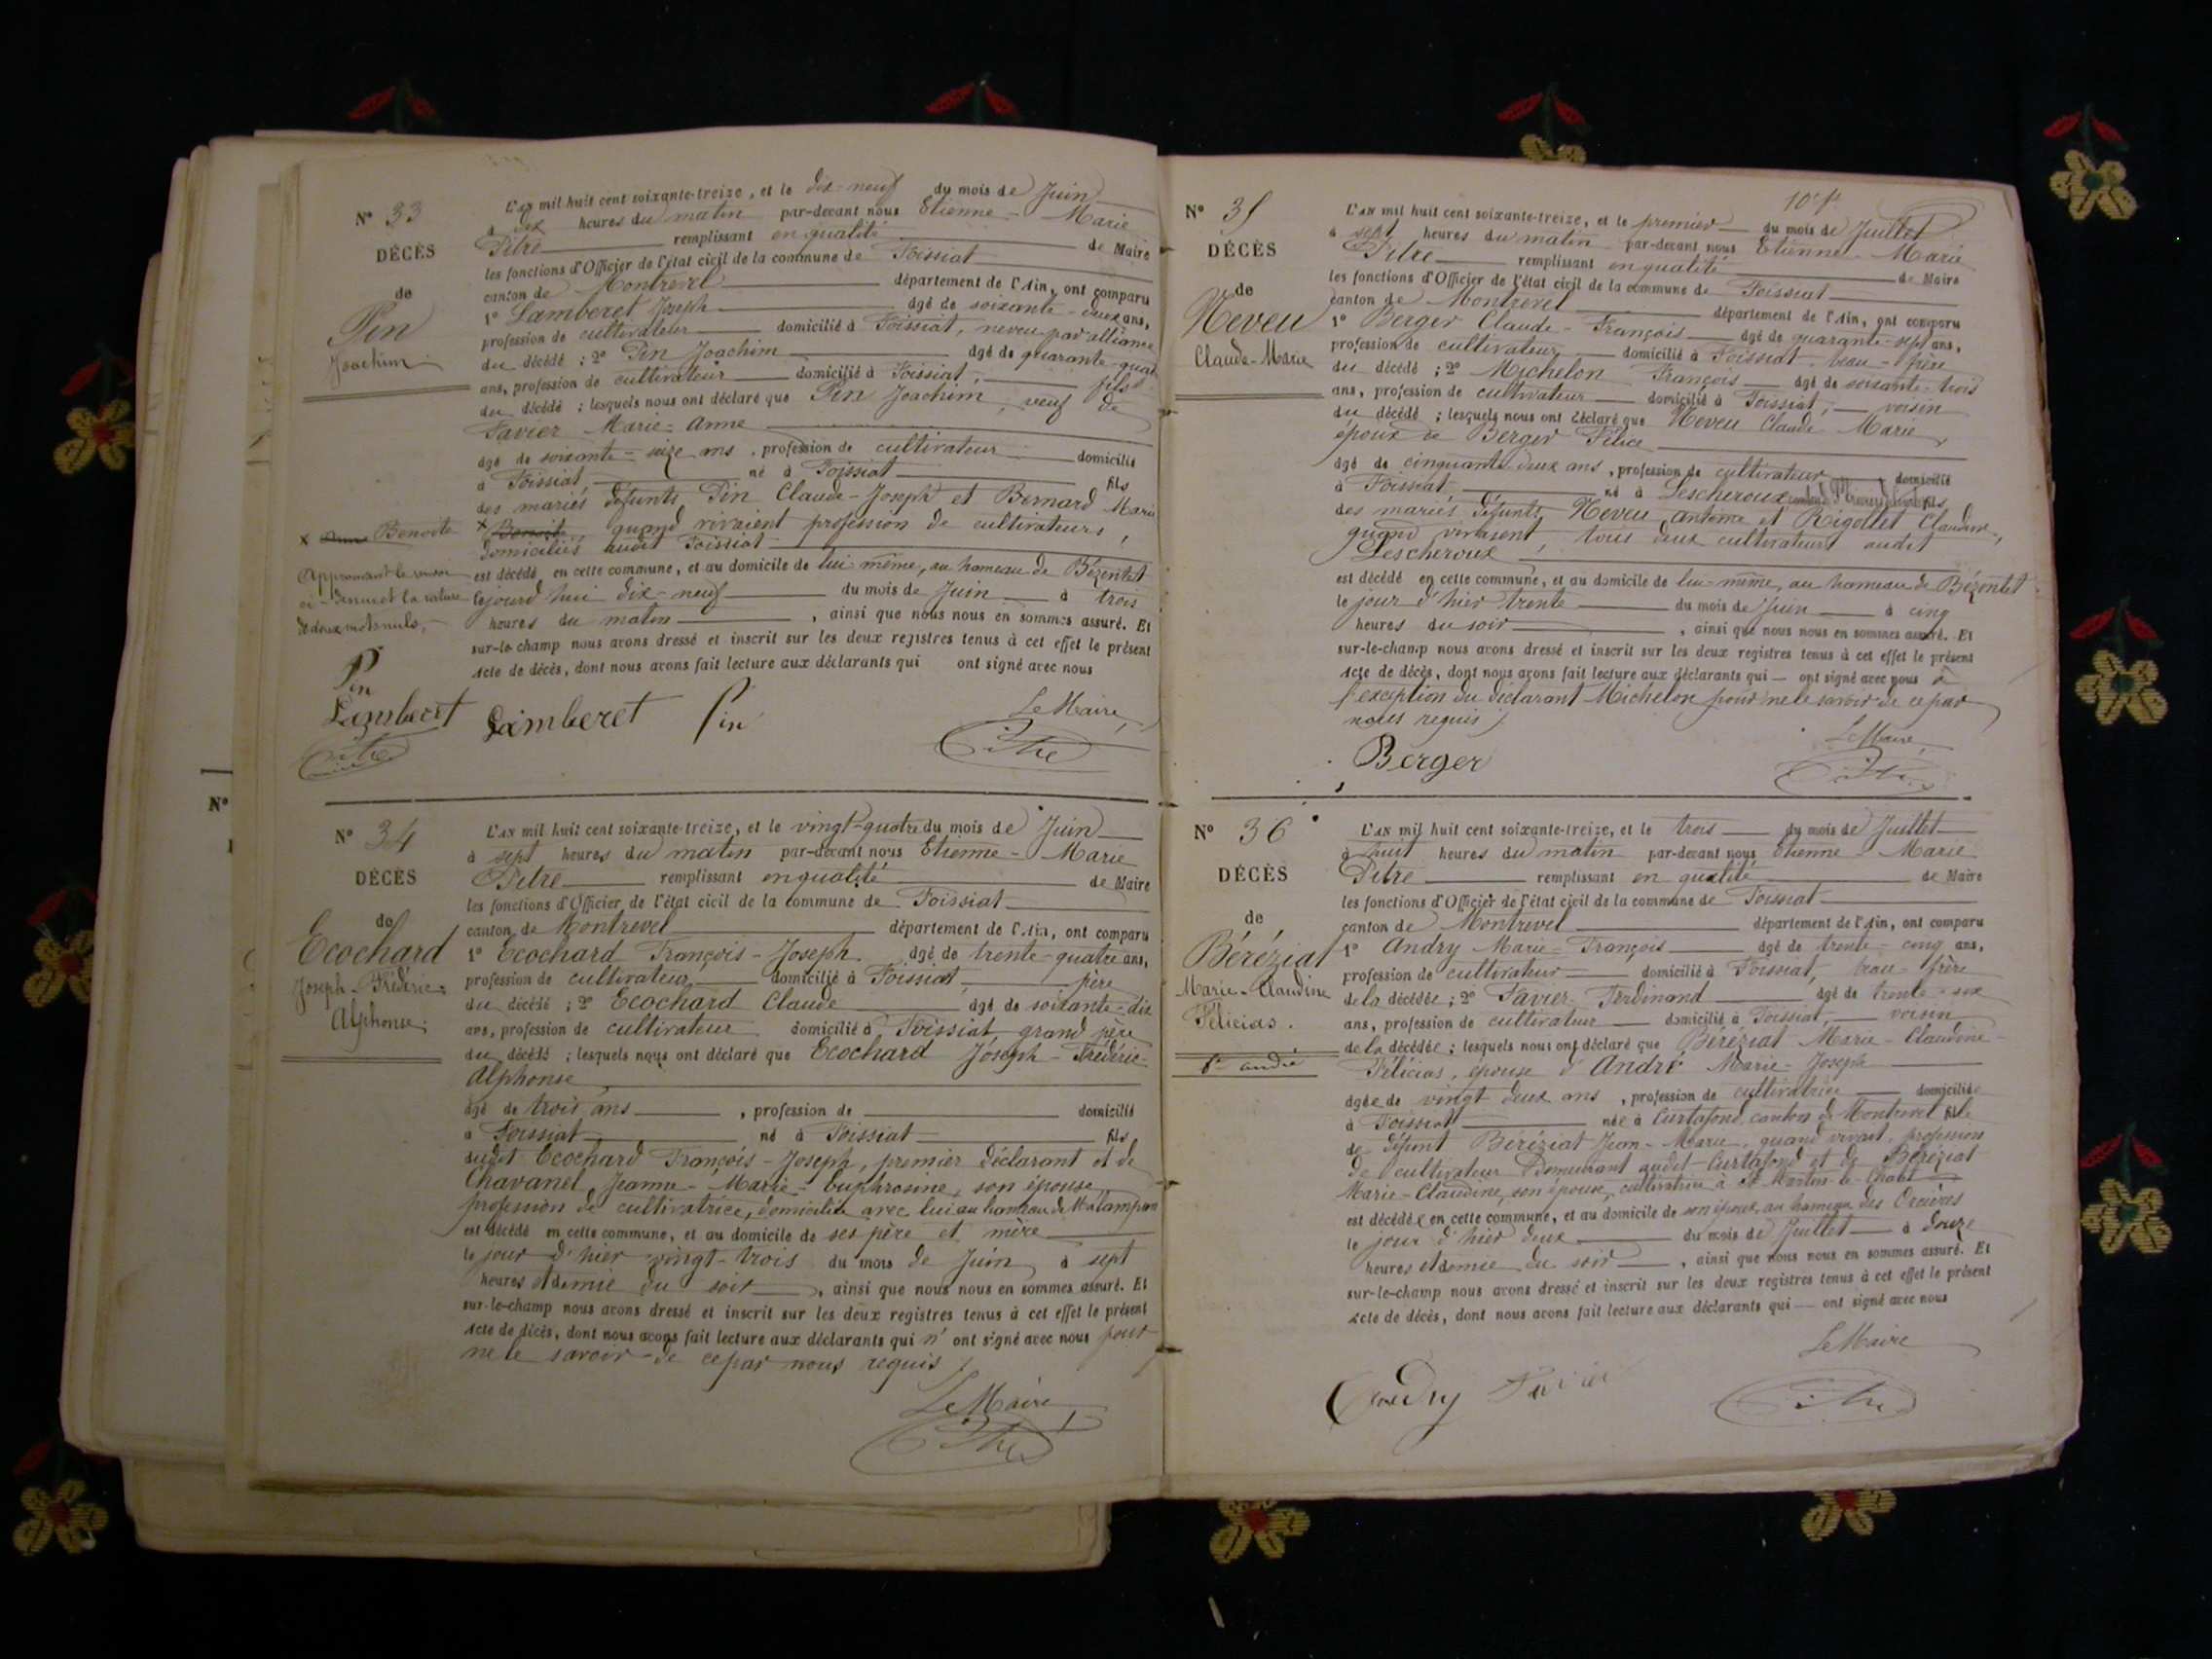 N° 33
DÉCÈS
de
Pin
Joachim
L'an mil huit cent soixante-treize, et le dix-neuf du mois de Juin
à dix heures du matin par-devant nous Etienne-Marie
Pitre remplissant en qualité de Maire
les fonctions d'Officier de l'état civil de la commune de Foissiat
canton de Montrevel département de l'Ain, ont comparu
1° Lamberet Joseph âgé de soixante-deux ans,
profession de cultivateur domicilié à Foissiat, neveu par alliance
du décédé ; 2° Pin Joachim âgé de quarante-quatre
ans, profession de cultivateur domicilié à Foissiat, fils
du décédé ; lesquels nous ont déclaré que Pin Joachim, veuf de
Favier Marie-Anne
âgé de soixante-seize ans, profession de cultivateur domicilié
à Foissiat, né à Foissiat fils
des mariés défunts Pin Claude-Joseph et Bernard Marie
x Benoite quand vivaient profession de cultivateurs,
domiciliés audit Foissiat
est décédé en cette commune, et au domicile de lui même, au hameau de Bézentet
le jourd'hui dix-neuf du mois de Juin à trois
heures du matin, ainsi que nous nous en sommes assuré. Et
sur-le-champ nous avons dressé et inscrit sur les deux registres tenus à cet effet le présent
acte de décès, dont nous avons fait lecture aux déclarants qui ont signé avec nous
x Benoite
Approuvant le renvoi
ci-dessus et la rature
de deux mots nuls,
Pin
Lamberet
Pitre
Lamberet Pin
Le Maire,
Pitre
N° 34
DÉCÈS
de
Ecochard
Joseph-Frédéric-
Alphonse
L'an mil huit cent soixante-treize, et le vingt-quatre du mois de Juin
à sept heures du matin par-devant nous Etienne-Marie
Pitre remplissant en qualité de Maire
les fonctions d'Officier de l'état civil de la commune de Foissiat
canton de Montrevel département de l'Ain, ont comparu
1° Ecochard François-Joseph âgé de trente-quatre ans,
profession de cultivateur domicilié à Foissiat, père
du décédé ; 2° Ecochard Claude âgé de soixante-dix
ans, profession de cultivateur domicilié à Foissiat, grand père
du décédé ; lesquels nous ont déclaré que Ecochard Joseph-Frédéric-
Alphonse
âgé de trois ans, profession de domicilié
à Foissiat, né à Foissiat fils
dudit Ecochard François-Joseph, premier déclarant et de
Chavanel Jeanne-Marie-Euphrosine, son épouse,
profession de cultivatrice, domiciliée avec lui au hameau de
est décédé en cette commune, et au domicile de ses père et mère
le jour d'hier vingt-trois du mois de Juin à sept
heures et demie du soir, ainsi que nous nous en sommes assuré. Et
sur-le-champ nous avons dressé et inscrit sur les deux registres tenus à cet effet le présent
acte de décès, dont nous avons fait lecture aux déclarants qui n'ont signé avec nous pour
ne le savoir de ce par nous requis
Le Maire
Pitre
N° 35
DÉCÈS
de
Neveu
Claude-Marie
L'an mil huit cent soixante-treize, et le premier du mois de Juillet
à sept heures du matin par-devant nous Etienne Marie
Pitre remplissant en qualité de Maire
les fonctions d'Officier de l'état civil de la commune de Foissiat
canton de Montrevel département de l'Ain, ont comparu
1° Berger Claude-François âgé de quarante-sept ans,
profession de cultivateur domicilié à Foissiat, beau-frère
du décédé ; 2° Michelon François âgé de soixante-trois
ans, profession de cultivateur domicilié à Foissiat, voisin
du décédé ; lesquels nous ont déclaré que Neveu Claude Marie,
époux de Berger Félice
âgé de cinquante-deux ans, profession de cultivateur domicilié
à Foissiat, né à Lescheroux fils
des mariés défunts Neveu Antoine et Rigollet Claudine,
quand vivaient, tous deux cultivateurs audit
Lescheroux
est décédé en cette commune, et au domicile de lui-même, au hameau de Bézentet
le jour d'hier trente du mois de Juin à cinq
heures du soir, ainsi que nous nous en sommes assuré. Et
sur-le-champ nous avons dressé et inscrit sur les deux registres tenus à cet effet le présent
acte de décès, dont nous avons fait lecture aux déclarants qui ont signé avec nous à
l'exception du déclarant Michelon pour ne le savoir de ce par
nous requis
Berger
Le Maire,
Pitre
N° 36
DÉCÈS
de
Béréziat
Marie-Claudine
Félicias.
L'an mil huit cent soixante-treize, et le trois du mois de Juillet
à huit heures du matin par-devant nous Etienne Marie
Pitre remplissant en qualité de Maire
les fonctions d'Officier de l'état civil de la commune de Foissiat
canton de Montrevel département de l'Ain, ont comparu
1° Andry Marie-François âgé de trente-cinq ans,
profession de cultivateur domicilié à Foissiat, beau-frère
de la décédée ; 2° Favier Ferdinand âgé de trente-six
ans, profession de cultivateur domicilié à Foissiat, voisin
de la décédée ; lesquels nous ont déclaré que Béréziat Marie-Claudine-
Félicias, épouse d'André Marie-Joseph
âgée de vingt deux ans, profession de cultivatrice domiciliée
à Foissiat née à Curtafond, canton de Montrevel fille
de défunt Béréziat Jean-Marie, quand vivait, profession
de cultivateur demeurant audit Curtafond et de Béréziat
Marie-Claudine, son épouse, cultivatrice à St Martin-le-Chatel
est décédée en cette commune, et au domicile de son époux, au hameau des
le jour d'hier deux du mois de Juillet à douze
heures et demie du soir, ainsi que nous nous en sommes assuré. Et
sur-le-champ nous avons dressé et inscrit sur les deux registres tenus à cet effet le présent
acte de décès, dont nous avons fait lecture aux déclarants qui ont signé avec nous
Le Maire
Andry Favier
Pitre
N°